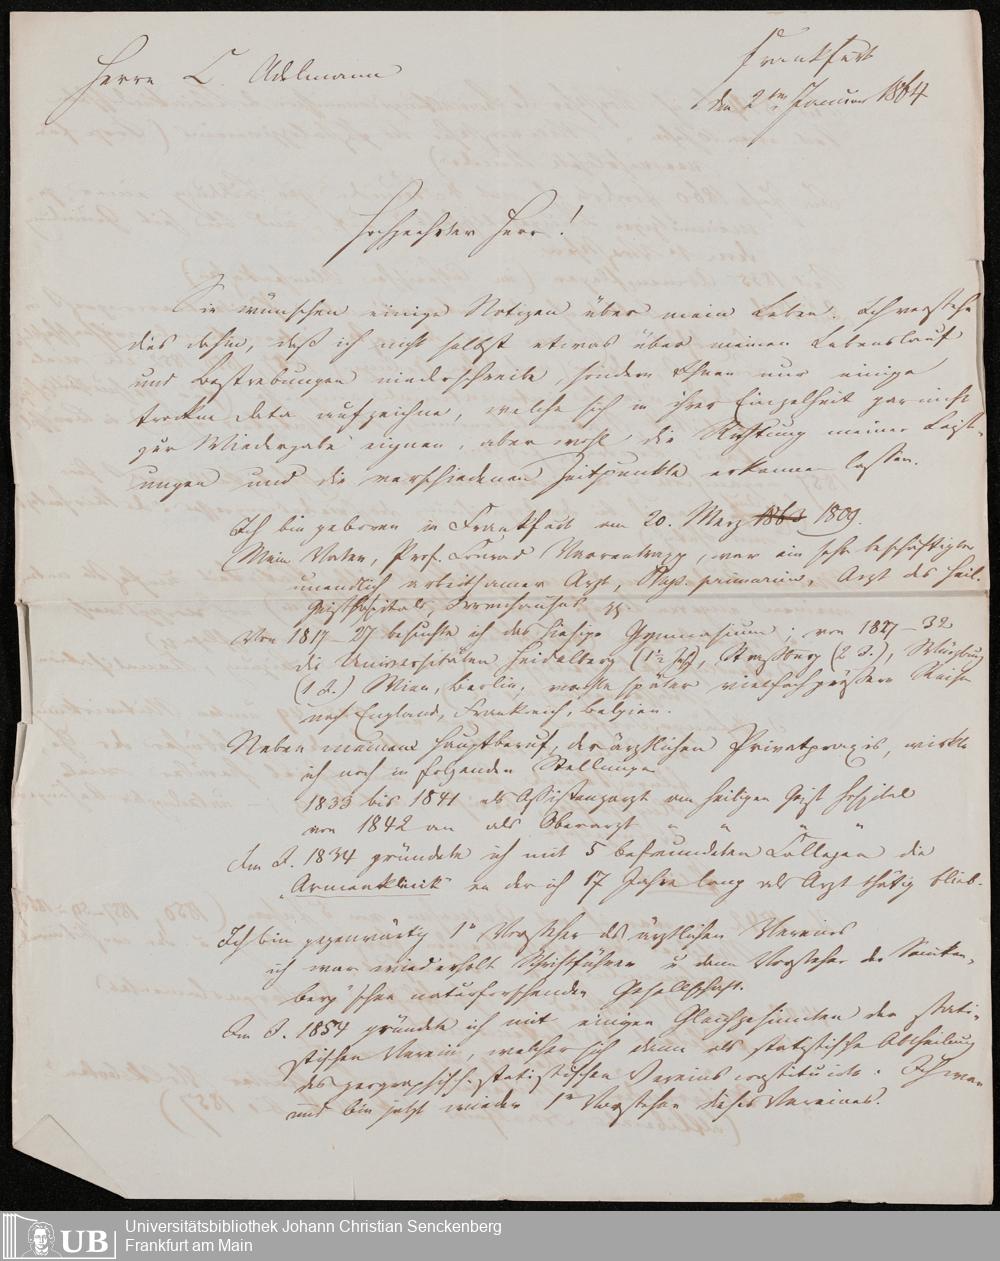 Herrn C. Adelmann
Frankfurt
den 2ten Januar 1864
Hochgeehrter Herr!
Sie wünschen einige Notizen über mein Leben. Ich verstehe
dies dahin, daß ich nicht selbst etwas über meinen Lebenslauf
und Bestrebungen niederschreibe, sondern Ihnen nur einige
trockne Data aufzeichne, welche sich in ihrer Einzelheit gar nicht
zur Wiedergabe eignen, aber wohl die Richtung meiner Leist-
ungen und die verschiedenen Zeitpunkte erkennen lassen.
Ich bin geboren in Frankfurt am 20. März 1863 1809.
Mein Vater, Prof. Conrad Varrentrapp, war ein sehr beschäftigter
unendlich arbeitsamer Arzt, Phys. primarius, Arzt des Heil.
Geisthospitals, Irrenhauses
Von 1817–27 besuchte ich das hiesige Gymnasium; von 1827–32
die Universitäten Heidelberg (1½ J.), Straßburg (2 J.), Würzburg
(1 J.) Wien, Berlin, machte später vielfach größere Reisen
nach England, Frankreich, Belgien.
Neben meinem Hauptberuf, der ärztlichen Privatpraxis, wirkte
ich noch in folgenden Stellungen
1833 bis 1841 als Assistenzarzt am heiligen Geist Hospital
von 1842 an als Oberarzt " " " "
Im J. 1834 gründete ich mit 5 befreundeten Collegen die
„Armenklinik" an der ich 17 Jahre lang als Arzt thätig blieb.
Ich bin gegenwärtig 1r Vorsteher des ärztlichen Vereins
ich war wiederholt Schriftführer u dann Vorsteher der Senken-
berg'schen naturforschenden Gesellschaft.
Im J. 1854 gründete ich mit einigen Gleichgesinnten den stati-
stischen Verein, welcher sich dann als statistische Abtheilung
des geographisch-statistischen Vereins constituirte. Ich war
und bin jetzt wieder 1r Vorsteher dieses Vereines.
UB
Universitätsbibliothek Johann Christian Senckenberg
Frankfurt am Main